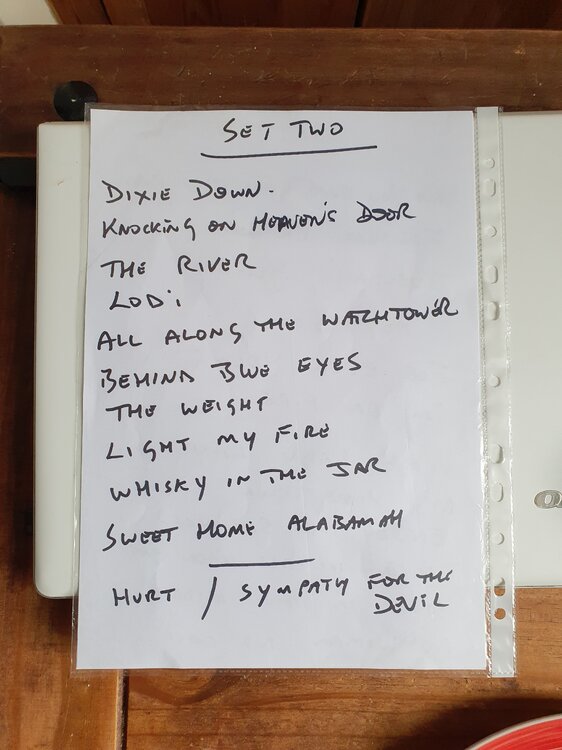 SET TWO
DIXIE DOWN.
KNOCKING ON HEAVEN'S DOOR
THE RIVER
LODi
ALL ALONG THE WATCHTOWER
BEHIND BLUE EYES
THE WEIGHT
LIGHT MY FIRE
WHISKY IN THE JAR
SWEET HOME ALABAMAH
HURT / SYMPATHY FOR THE
DEVIL